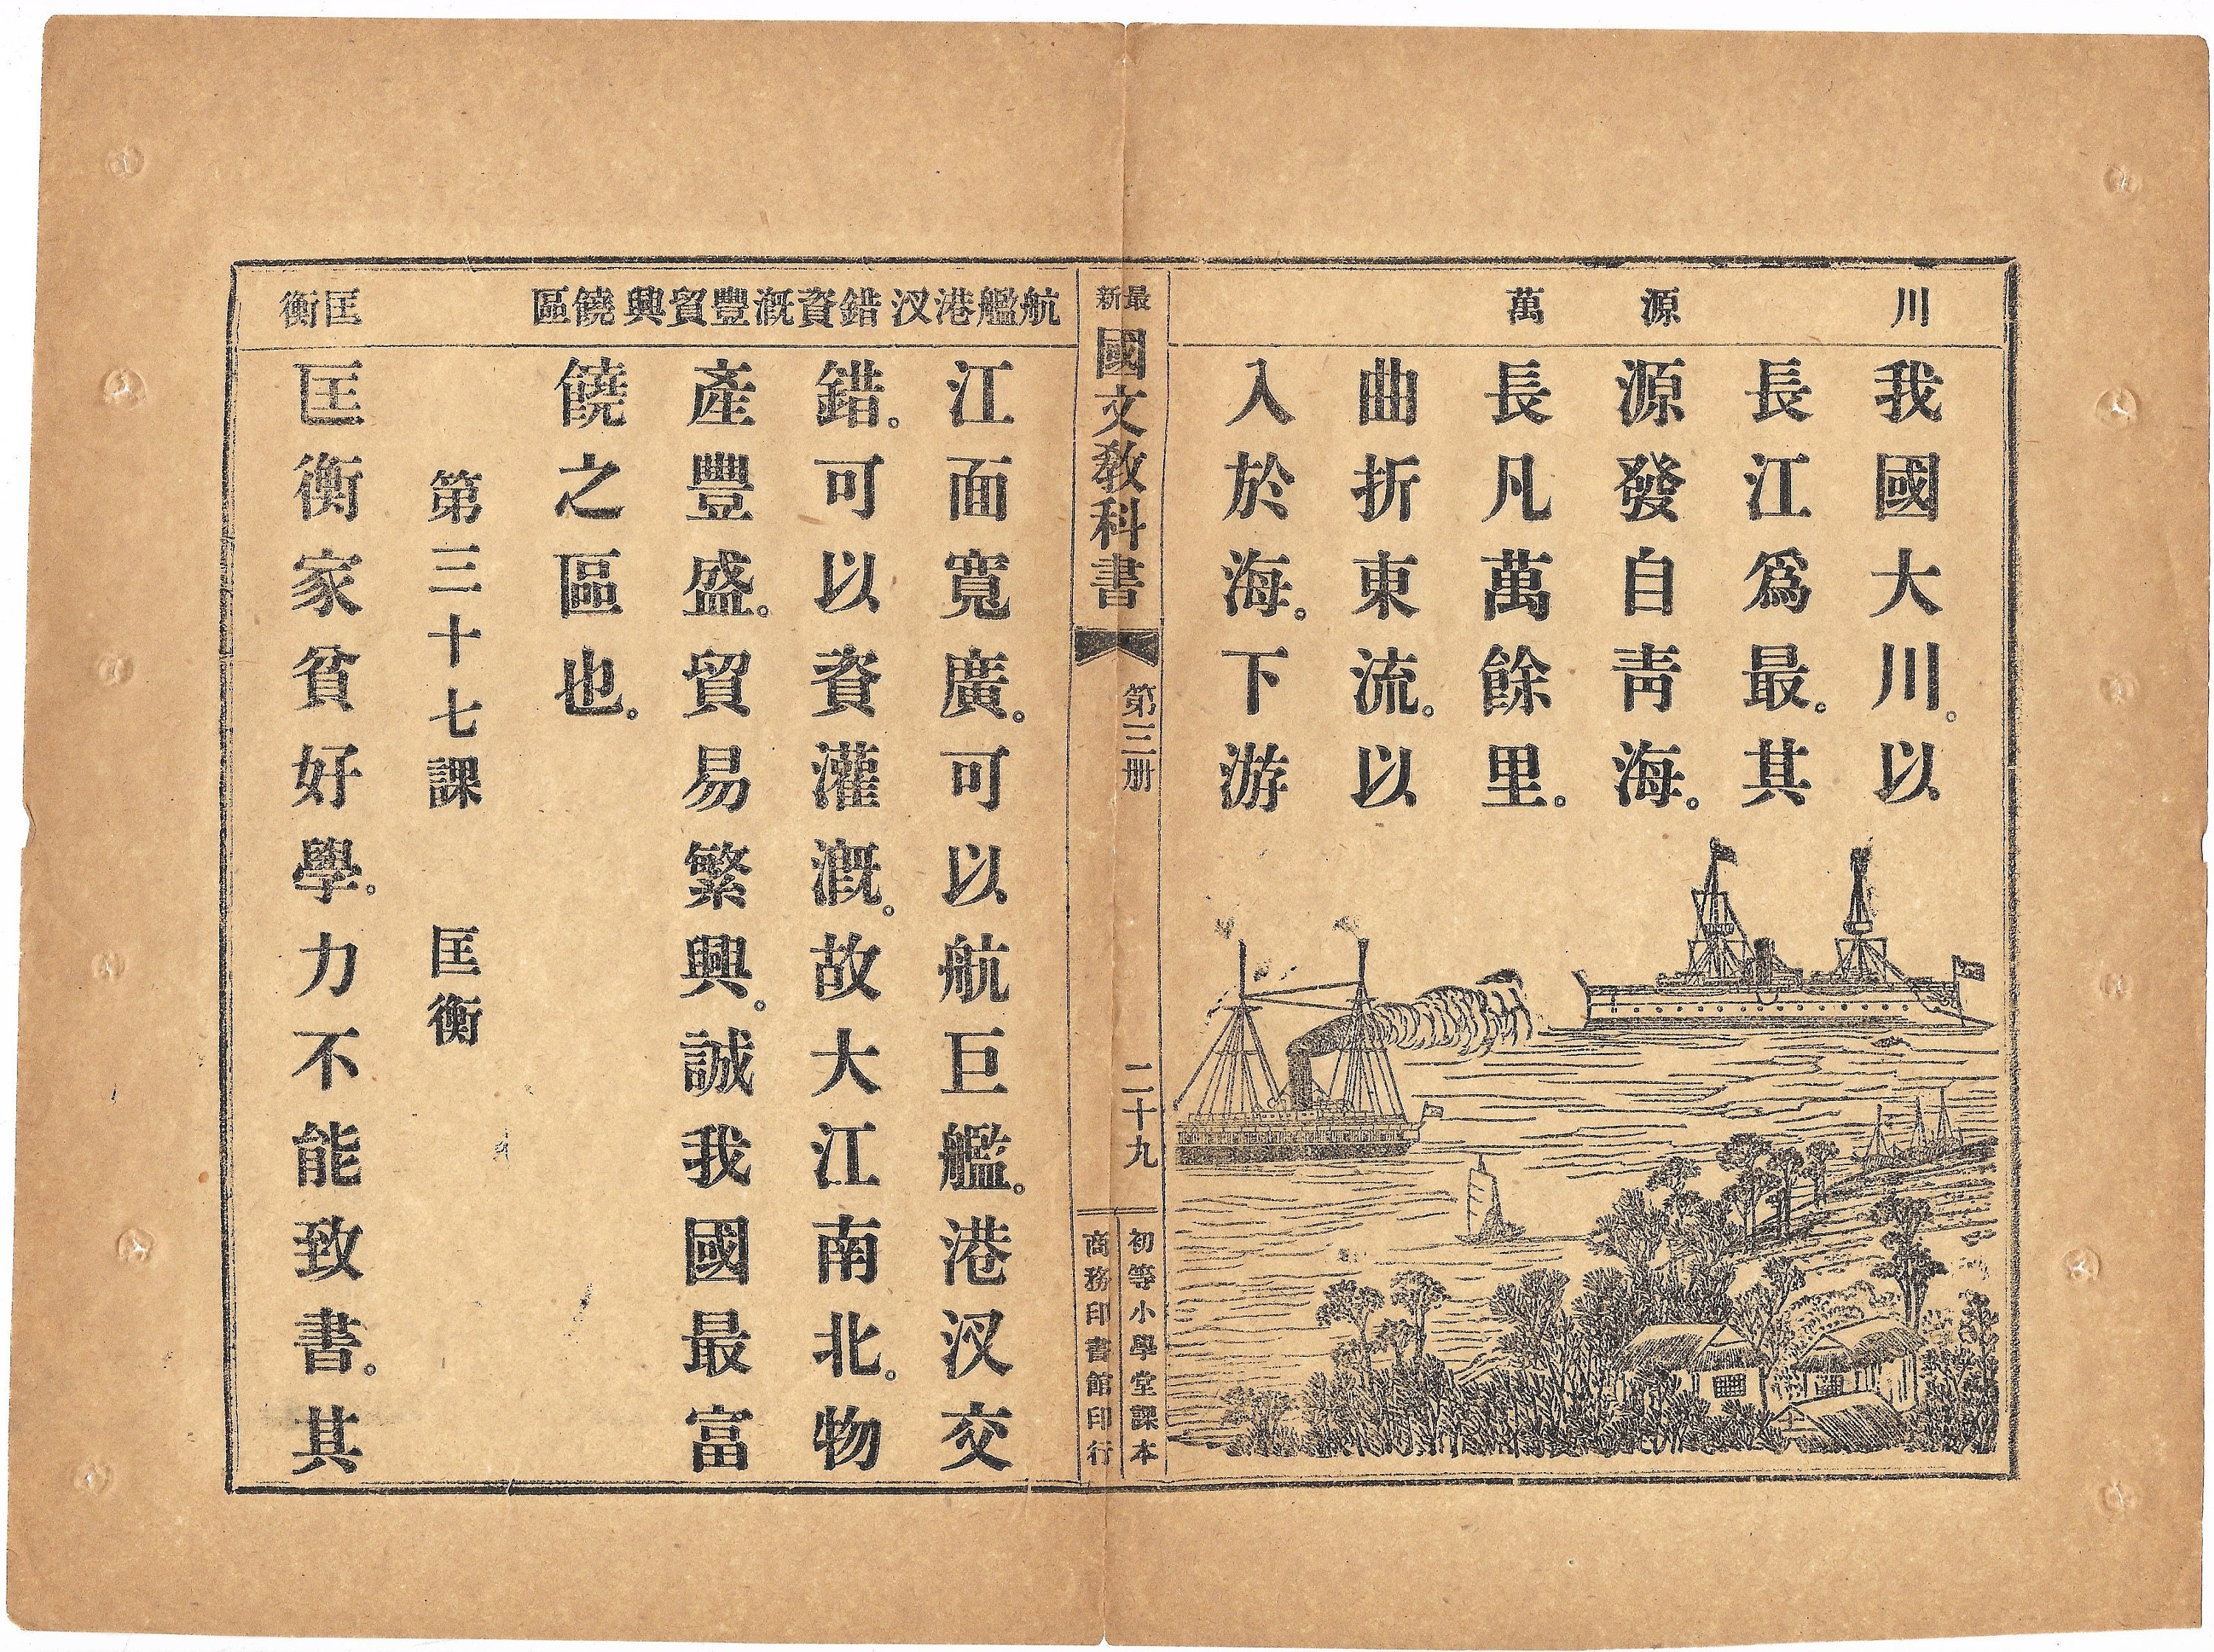 川
源
萬
我國大川。以
長江爲最。其
源發自靑海。
長凡萬餘里。
曲折東流。以
入於海。下游
最新
國文敎科書
第三册
二十九
初等小學堂課本
商務印書館印行
航艦港汊錯資漑豐貿興饒區
匡衡
江面寬廣。可以航巨艦。港汊交
錯。可以資灌漑。故大江南北。物
產豐盛。貿易繁興。誠我國最富
饒之區也。
第三十七課 匡衡
匡衡家貧好學。力不能致書。其